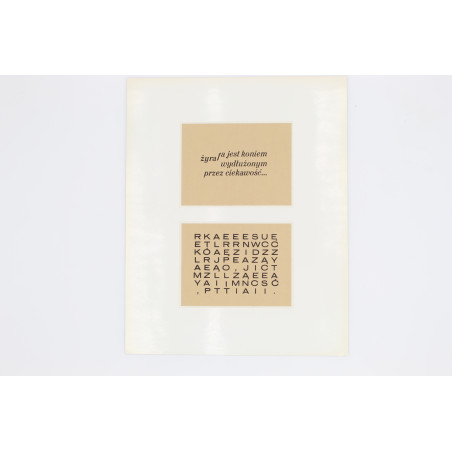 żyrafa jest koniem
wydłużonym
przez ciekawość...
RKAEEESUĘ
ETLRRNWCĆ
KÓAĘZIDZZ
LRJPEAZĄY
AEĄO,JICT
MZLLŻĄEEA
YAIIJMNCSĆ
.PTTIAII.